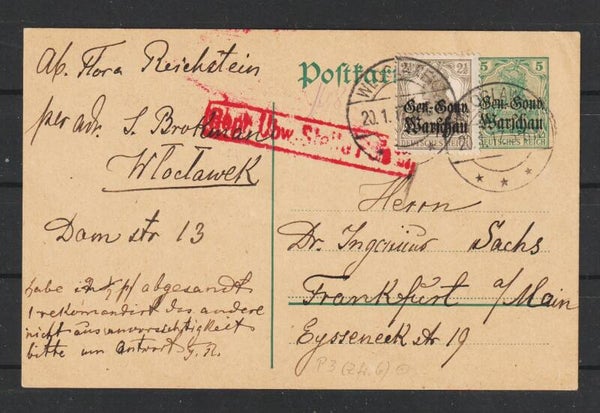 Ab. Flora Reichstein
per adr. S. Brotman
Włocławek
Dam str 13
habe 2 ½ pf abgesandt
1 rekomandirt das andere
nicht aus unvorsichtigkeit
bitte um Antwort
Postkar
5 5
2½ 2½
Gen.-Gouv.
Warschau
DEUTSCHES REICH
Gen.-Gouv.
Warschau
DEUTSCHES REICH
20.1.1
Herrn
Dr. Ingenieur Sachs
Frankfurt a/Main
Eysseneck str 19
P3 (24.6)